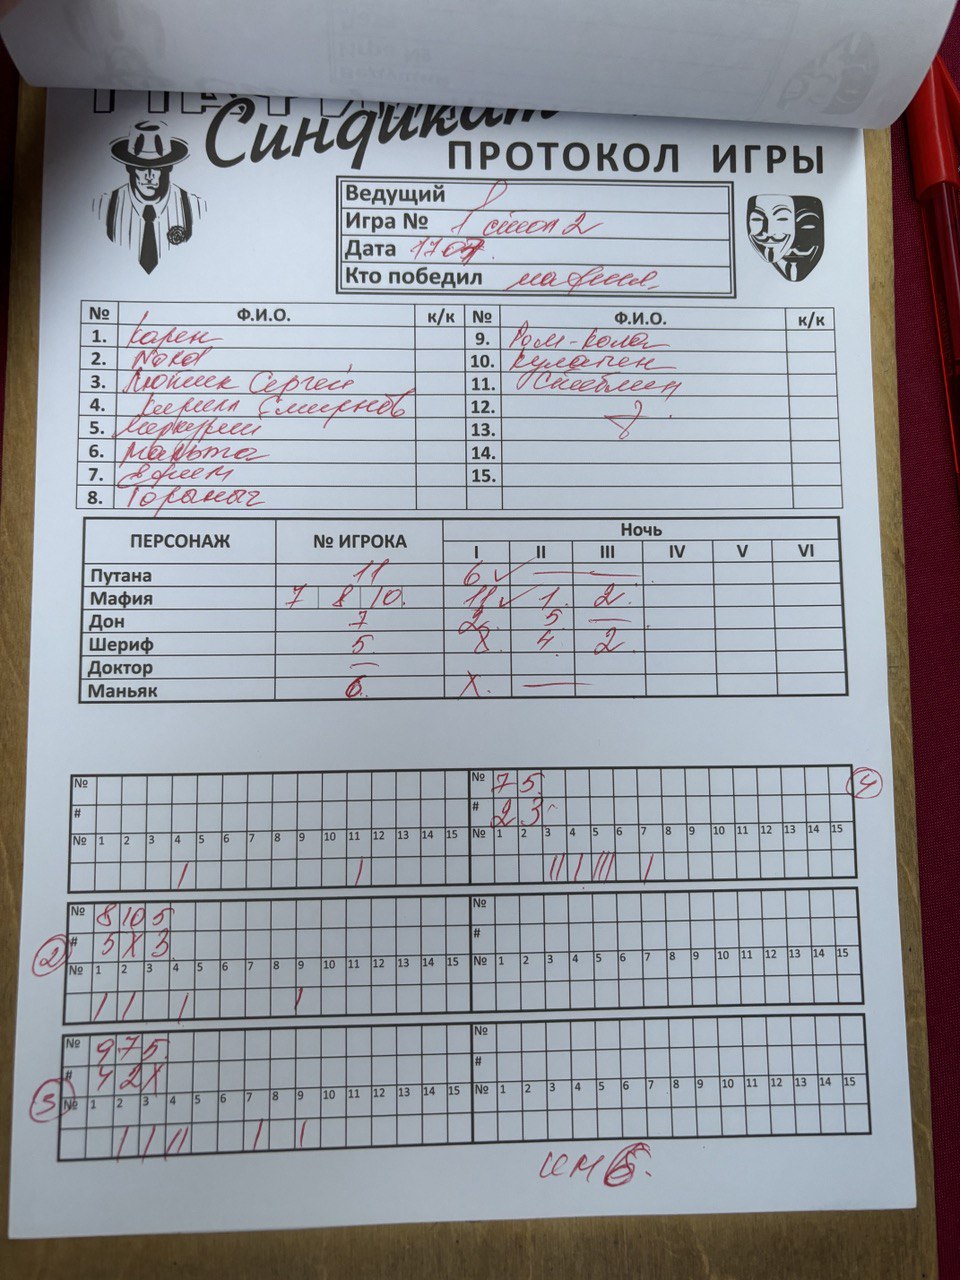 Синдикат
ПРОТОКОЛ ИГРЫ
Ведущий
Игра № 1 стол 2
Дата 1707.
Кто победил мафия.
№ Ф.И.О. к/к № Ф.И.О. к/к
1. Карен 9. Ром-Кола
2. Nord 10.
3. Сергей 11.
4. Кирилл Смирнов 12.
5. Меркурий 13.
6. Мальта 14.
7. 15.
8. Горыныч
ПЕРСОНАЖ № ИГРОКА Ночь
I II III IV V VI
Путана 11 6 ✓ —
Мафия 7 8 10. 11 ✓ 1. 2.
Дон 7 2. 5 —
Шериф 5. 8. 4. 2
Доктор —
Маньяк 6. X. —
№ № 7 5. 4
# # 2 3
№ 1 2 3 4 5 6 7 8 9 10 11 12 13 14 15 № 1 2 3 4 5 6 7 8 9 10 11 12 13 14 15
/ / // / /// /
№ 8 10 5 №
2 # 5 X 3 #
№ 1 2 3 4 5 6 7 8 9 10 11 12 13 14 15 № 1 2 3 4 5 6 7 8 9 10 11 12 13 14 15
/ / / /
№ 9 7 5 №
3 # 4 2 X #
№ 1 2 3 4 5 6 7 8 9 10 11 12 13 14 15 № 1 2 3 4 5 6 7 8 9 10 11 12 13 14 15
/ / // / /